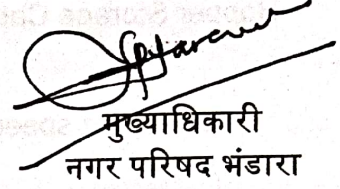 मुख्याधिकारी
नगर परिषद भंडारा